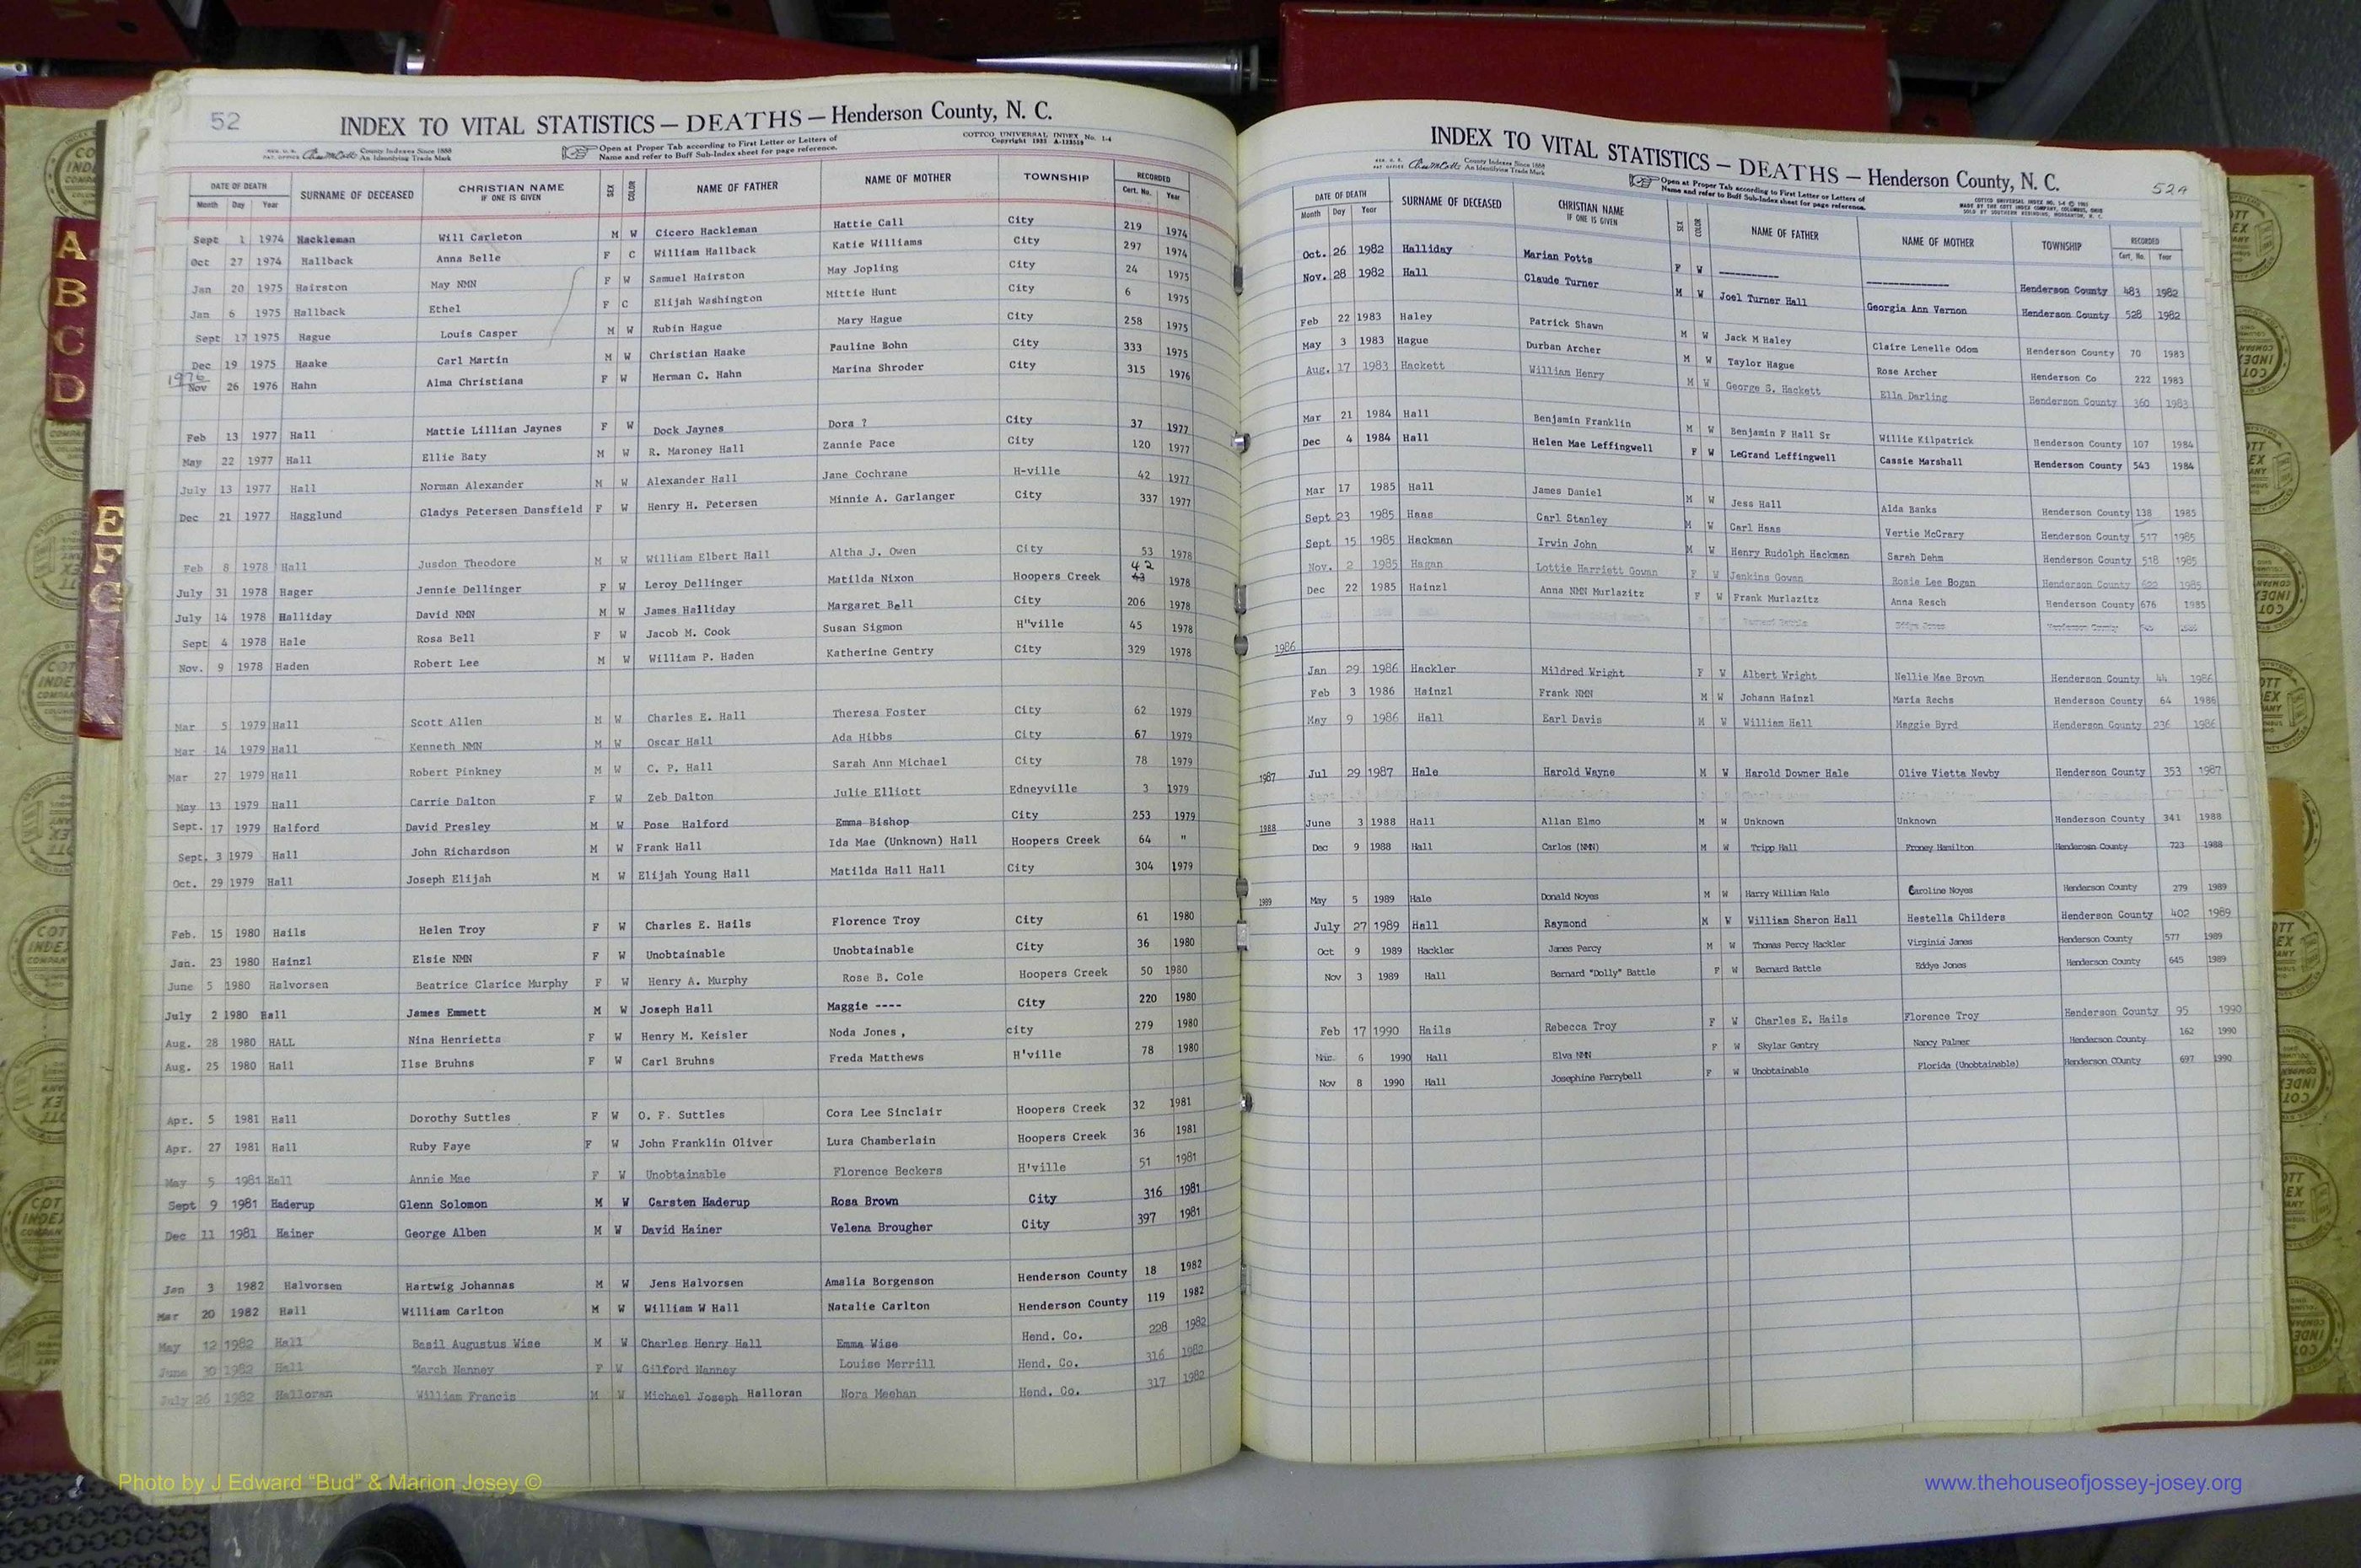 52
INDEX TO VITAL STATISTICS — DEATHS — Henderson County, N. C.
County Indexes Since 1888
An Identifying Trade Mark
Open at Proper Tab according to First Letter or Letters of
Name and refer to Buff Sub-Index sheet for page reference.
COTTCO UNIVERSAL INDEX No. 1-4
DATE OF DEATH SURNAME OF DECEASED CHRISTIAN NAME IF ONE IS GIVEN SEX COLOR NAME OF FATHER NAME OF MOTHER TOWNSHIP RECORDED
Month Day Year Cert. No. Year
Sept 1 1974 Hackleman Will Carleton M W Cicero Hackleman Hattie Call City 219 1974
Oct 27 1974 Hallback Anna Belle F C William Hallback Katie Williams City 297 1974
Jan 20 1975 Hairston May NMN F W Samuel Hairston May Jopling City 24 1975
Jan 6 1975 Hallback Ethel F C Elijah Washington Mittie Hunt City 6 1975
Sept 17 1975 Hague Louis Casper M W Rubin Hague Mary Hague City 258 1975
Dec 19 1975 Haake Carl Martin M W Christian Haake Pauline Bohn City 333 1975
1976
Nov 26 1976 Hahn Alma Christiana F W Herman C. Hahn Marina Shroder City 315 1976
Feb 13 1977 Hall Mattie Lillian Jaynes F W Dock Jaynes Dora ? City 37 1977
May 22 1977 Hall Ellie Baty M W R. Maroney Hall Zannie Pace City 120 1977
July 13 1977 Hall Norman Alexander M W Alexander Hall Jane Cochrane H-ville 42 1977
Dec 21 1977 Hagglund Gladys Petersen Dansfield F W Henry H. Petersen Minnie A. Garlanger City 337 1977
Feb 8 1978 Hall Jusdon Theodore M W William Elbert Hall Altha J. Owen City 53 1978
42
July 31 1978 Hager Jennie Dellinger F W Leroy Dellinger Matilda Nixon Hoopers Creek 43 1978
July 14 1978 Halliday David NMN M W James Halliday Margaret Bell City 206 1978
Sept 4 1978 Hale Rosa Bell F W Jacob M. Cook Susan Sigmon H"ville 45 1978
Nov. 9 1978 Haden Robert Lee M W William P. Haden Katherine Gentry City 329 1978
Mar 5 1979 Hall Scott Allen M W Charles E. Hall Theresa Foster City 62 1979
Mar 14 1979 Hall Kenneth NMN M W Oscar Hall Ada Hibbs City 67 1979
Mar 27 1979 Hall Robert Pinkney M W C. P. Hall Sarah Ann Michael City 78 1979
May 13 1979 Hall Carrie Dalton F W Zeb Dalton Julie Elliott Edneyville 3 1979
Sept. 17 1979 Halford David Presley M W Pose Halford Emma Bishop City 253 1979
Sept. 3 1979 Hall John Richardson M W Frank Hall Ida Mae (Unknown) Hall Hoopers Creek 64 "
Oct. 29 1979 Hall Joseph Elijah M W Elijah Young Hall Matilda Hall Hall City 304 1979
Feb. 15 1980 Hails Helen Troy F W Charles E. Hails Florence Troy City 61 1980
Jan. 23 1980 Hainzl Elsie NMN F W Unobtainable Unobtainable City 36 1980
June 5 1980 Halvorsen Beatrice Clarice Murphy F W Henry A. Murphy Rose B. Cole Hoopers Creek 50 1980
July 2 1980 Hall James Emmett M W Joseph Hall Maggie ---- City 220 1980
Aug. 28 1980 HALL Nina Henrietta F W Henry M. Keisler Noda Jones , city 279 1980
Aug. 25 1980 Hall Ilse Bruhns F W Carl Bruhns Freda Matthews H'ville 78 1980
Apr. 5 1981 Hall Dorothy Suttles F W O. F. Suttles Cora Lee Sinclair Hoopers Creek 32 1981
Apr. 27 1981 Hall Ruby Faye F W John Franklin Oliver Lura Chamberlain Hoopers Creek 36 1981
May 5 1981 Hall Annie Mae F W Unobtainable Florence Beckers H'ville 51 1981
Sept 9 1981 Haderup Glenn Solomon M W Carsten Haderup Rosa Brown City 316 1981
Dec 11 1981 Hainer George Alben M W David Hainer Velena Brougher City 397 1981
Jan 3 1982 Halvorsen Hartwig Johannas M W Jens Halvorsen Amalia Borgenson Henderson County 18 1982
Mar 20 1982 Hall William Carlton M W William W Hall Natalie Carlton Henderson County 119 1982
May 12 1982 Hall Basil Augustus Wise M W Charles Henry Hall Emma Wise Hend. Co. 228 1982
June 30 1982 Hall March Nanney F W Gilford Nanney Louise Merrill Hend. Co. 316 1982
July 26 1982 Halloran William Francis M W Michael Joseph Halloran Nora Meehan Hend. Co. 317 1982
INDEX TO VITAL STATISTICS — DEATHS — Henderson County, N. C.
52A
County Indexes Since 1888
An Identifying Trade Mark
Open at Proper Tab according to First Letter or Letters of
Name and refer to Buff Sub-Index sheet for page reference.
DATE OF DEATH SURNAME OF DECEASED CHRISTIAN NAME IF ONE IS GIVEN SEX COLOR NAME OF FATHER NAME OF MOTHER TOWNSHIP RECORDED
Month Day Year Cert. No. Year
Oct. 26 1982 Halliday Marian Potts F W ---------- -------------- Henderson County 483 1982
Nov. 28 1982 Hall Claude Turner M W Joel Turner Hall Georgia Ann Vernon Henderson County 528 1982
Feb 22 1983 Haley Patrick Shawn M W Jack M Haley Claire Lenelle Odom Henderson County 70 1983
May 3 1983 Hague Durban Archer M W Taylor Hague Rose Archer Henderson Co 222 1983
Aug. 17 1983 Hackett William Henry M W George S. Hackett Ella Darling Henderson County 360 1983
Mar 21 1984 Hall Benjamin Franklin M W Benjamin F Hall Sr Willie Kilpatrick Henderson County 107 1984
Dec 4 1984 Hall Helen Mae Leffingwell F W LeGrand Leffingwell Cassie Marshall Henderson County 543 1984
Mar 17 1985 Hall James Daniel M W Jess Hall Alda Banks Henderson County 138 1985
Sept 23 1985 Haas Carl Stanley M W Carl Haas Vertie McCrary Henderson County 517 1985
Sept 15 1985 Hackman Irwin John M W Henry Rudolph Hackman Sarah Dehm Henderson County 518 1985
Nov. 2 1985 Hagan Lottie Harriett Gowan F W Jenkins Gowan Rosie Lee Bogan Henderson County 622 1985
Dec 22 1985 Hainzl Anna NMN Murlazitz F W Frank Murlazitz Anna Resch Henderson County 676 1985
1986
Jan 29 1986 Hackler Mildred Wright F W Albert Wright Nellie Mae Brown Henderson County 44 1986
Feb 3 1986 Hainzl Frank NMN M W Johann Hainzl Maria Rechs Henderson County 64 1986
May 9 1986 Hall Earl Davis M W William Hall Maggie Byrd Henderson County 236 1986
1987 Jul 29 1987 Hale Harold Wayne M W Harold Downer Hale Olive Vietta Newby Henderson County 353 1987
1988 June 3 1988 Hall Allan Elmo M W Unknown Unknown Henderson County 341 1988
Dec 9 1988 Hall Carlos (NMN) M W Tripp Hall Froney Hamilton Henderson County 723 1988
1989 May 5 1989 Hale Donald Noyes M W Harry William Hale Caroline Noyes Henderson County 279 1989
July 27 1989 Hall Raymond M W William Sharon Hall Hestella Childers Henderson County 402 1989
Oct 9 1989 Hackler James Percy M W Thomas Percy Hackler Virginia James Henderson County 577 1989
Nov 3 1989 Hall Bernard "Dolly" Battle F W Bernard Battle Eddye Jones Henderson County 645 1989
Feb 17 1990 Hails Rebecca Troy F W Charles E. Hails Florence Troy Henderson County 95 1990
Mar. 6 1990 Hall Elva NMN F W Skylar Gentry Nancy Palmer Henderson County 162 1990
Nov 8 1990 Hall Josephine Ferrybell F W Unobtainable Florida (Unobtainable) Henderson COunty 697 1990
A
B
C
D
E
F
G
Photo by J Edward “Bud” & Marion Josey ©
www.thehouseofjossey-josey.org